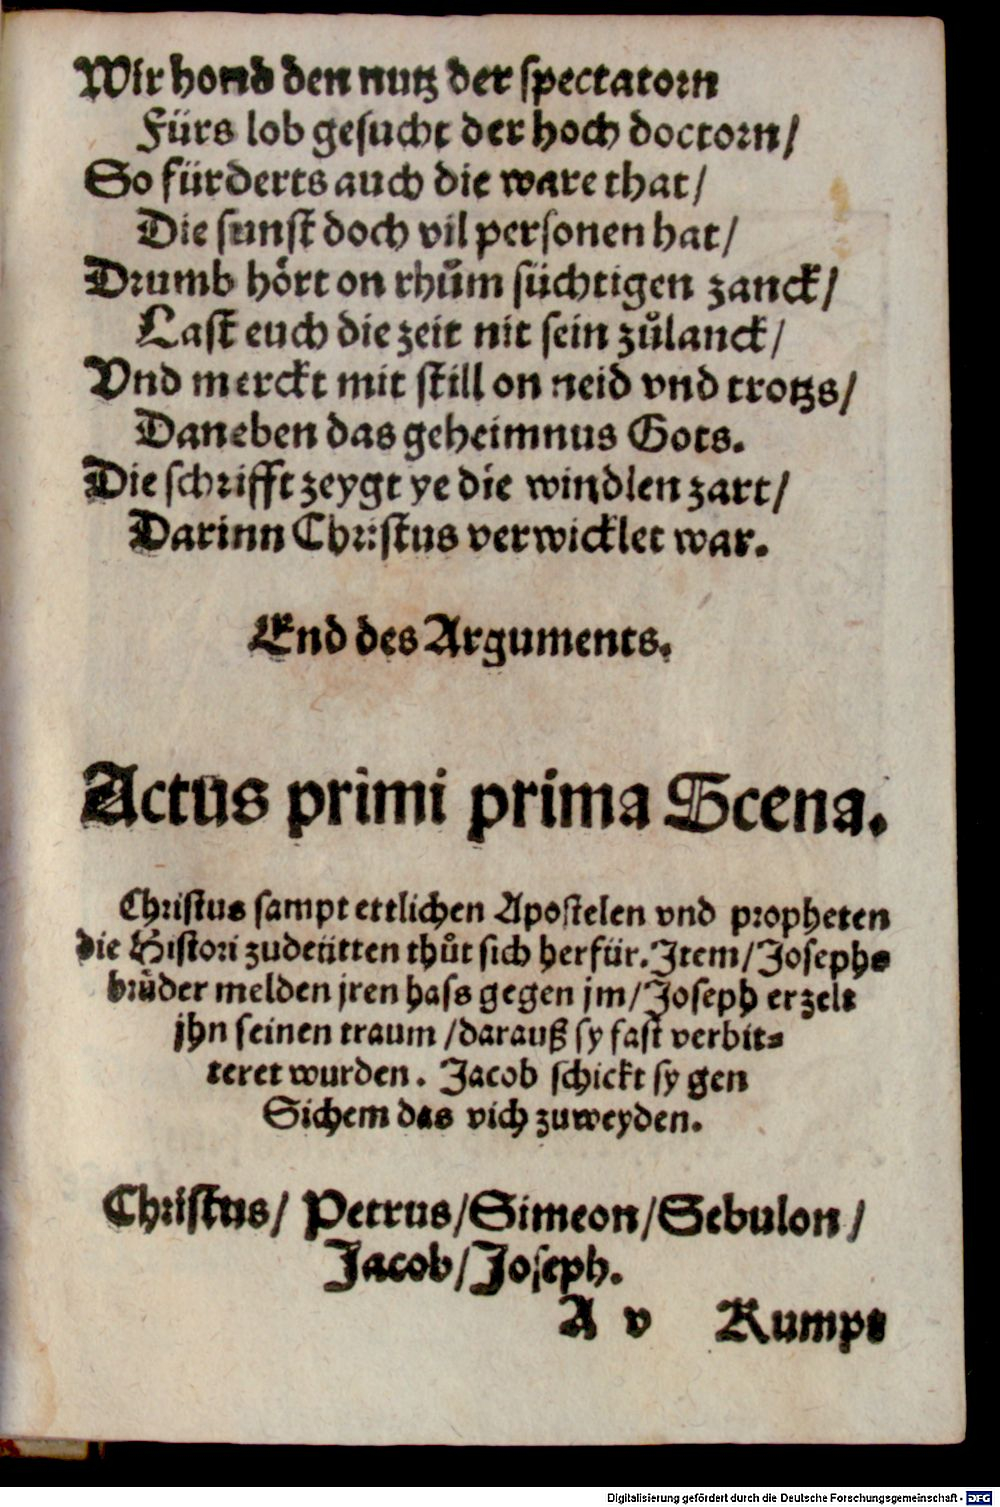 Wir hond den nutz der spectatorn
Fürs lob gesucht der hoch doctorn/
So fürderts auch die ware that/
Die sunst doch vil personen hat/
Drumb hört on rhům süchtigen zanck/
Last euch die zeit nit sein zůlanck/
Vnd merckt mit still on neid vnd trotzs/
Daneben das geheimnus Gots.
Die schrifft zeygt ye die windlen zart/
Darinn Christus verwicklet war.
End des Arguments.
Actus primi prima Scena.
Christus sampt ettlichen Apostelen vnd propheten
die Histori zudeütten thůt sich herfür. Item/Josephs
brůder melden jren hass gegen jm/Joseph erzelt
jhn seinen traum /darauß sy fast verbit⸗
teret wurden. Jacob schickt sy gen
Sichem das vich zuweyden.
Christus/ Petrus/Simeon/Sebulon/
Jacob/Joseph.
A v Rumpt
Digitalisierung gefördert durch die Deutsche Forschungsgemeinschaft - DFG